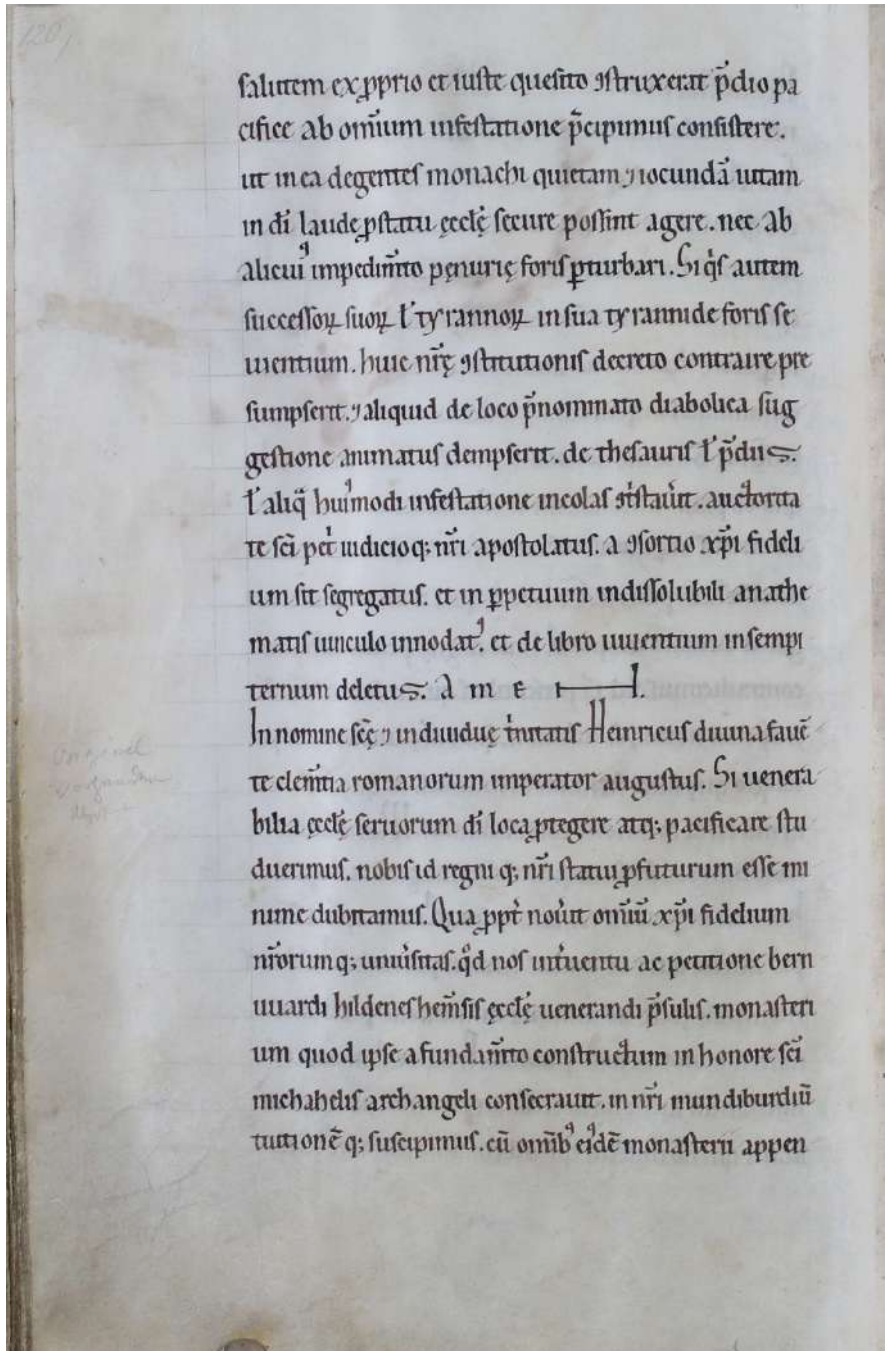 salutem ex ꝓprio et iuste quesito ꝯstruxerat p̄dio pa
cifice ab om̄ium infestatione p̄cipimus consistere.
ut in ea degentes monachi quietam ⁊ iocundā uitam
in dī laude ꝓ statu ęccłę secure possint agere. nec ab
alicuiꝰ impedim̄to penurię foris ꝑturbari. Si qͥs autem
successoꝝ suoꝝ ł tyrannoꝝ in sua tyrannide foris se
uientium. huic nr̄ę ꝯstitutionis decreto contraire pre
sumpserit. ⁊ aliquid de loco p̄nominato diabolica sug
gestione animatus dempserit. de thesauris ł p̄diis.
ł aliq̄ huiꝰmodi infestatione incolas ꝯt͛stauit͛. auctorita
te sc̄i pet͛ iudicioq; nr̄i apostolatus. a ꝯsortio xp̄i fideli
um sit segregatus. et in ꝑpetuum indissolubili anathe
matis uinculo innodatꝰ. et de libro uiuentium in sempi
ternum deletus. A m e N.
In nomine sc̄ę ⁊ indiuiduę t͛nitatis Heinricus diuina fauē
te clem̄tia romanorum imperator augustus. Si uenera
bilia ęccłę seruorum dī loca ꝓtegere atq; pacificare stu
duerimus. nobis id regni q; nr̄i statui ꝓfuturum esse mi
nime dubitamus. Qua ꝓpt͛ nou͛it om̄iū xp̄i fidelium
nr̄orum q; uniu͛sitas. qͦd nos int͛uentu ac petitione bern
uuardi hildeneshem̄sis ęccłę uenerandi p̄sulis. monasteri
um quod ipse a fundam̄to constructum in honore sc̄i
michahelis archangeli consecrauit. in nr̄i mundiburdiū
tuitionē q; suscipimus. cū om̄ibꝰ eidē monasterii appen